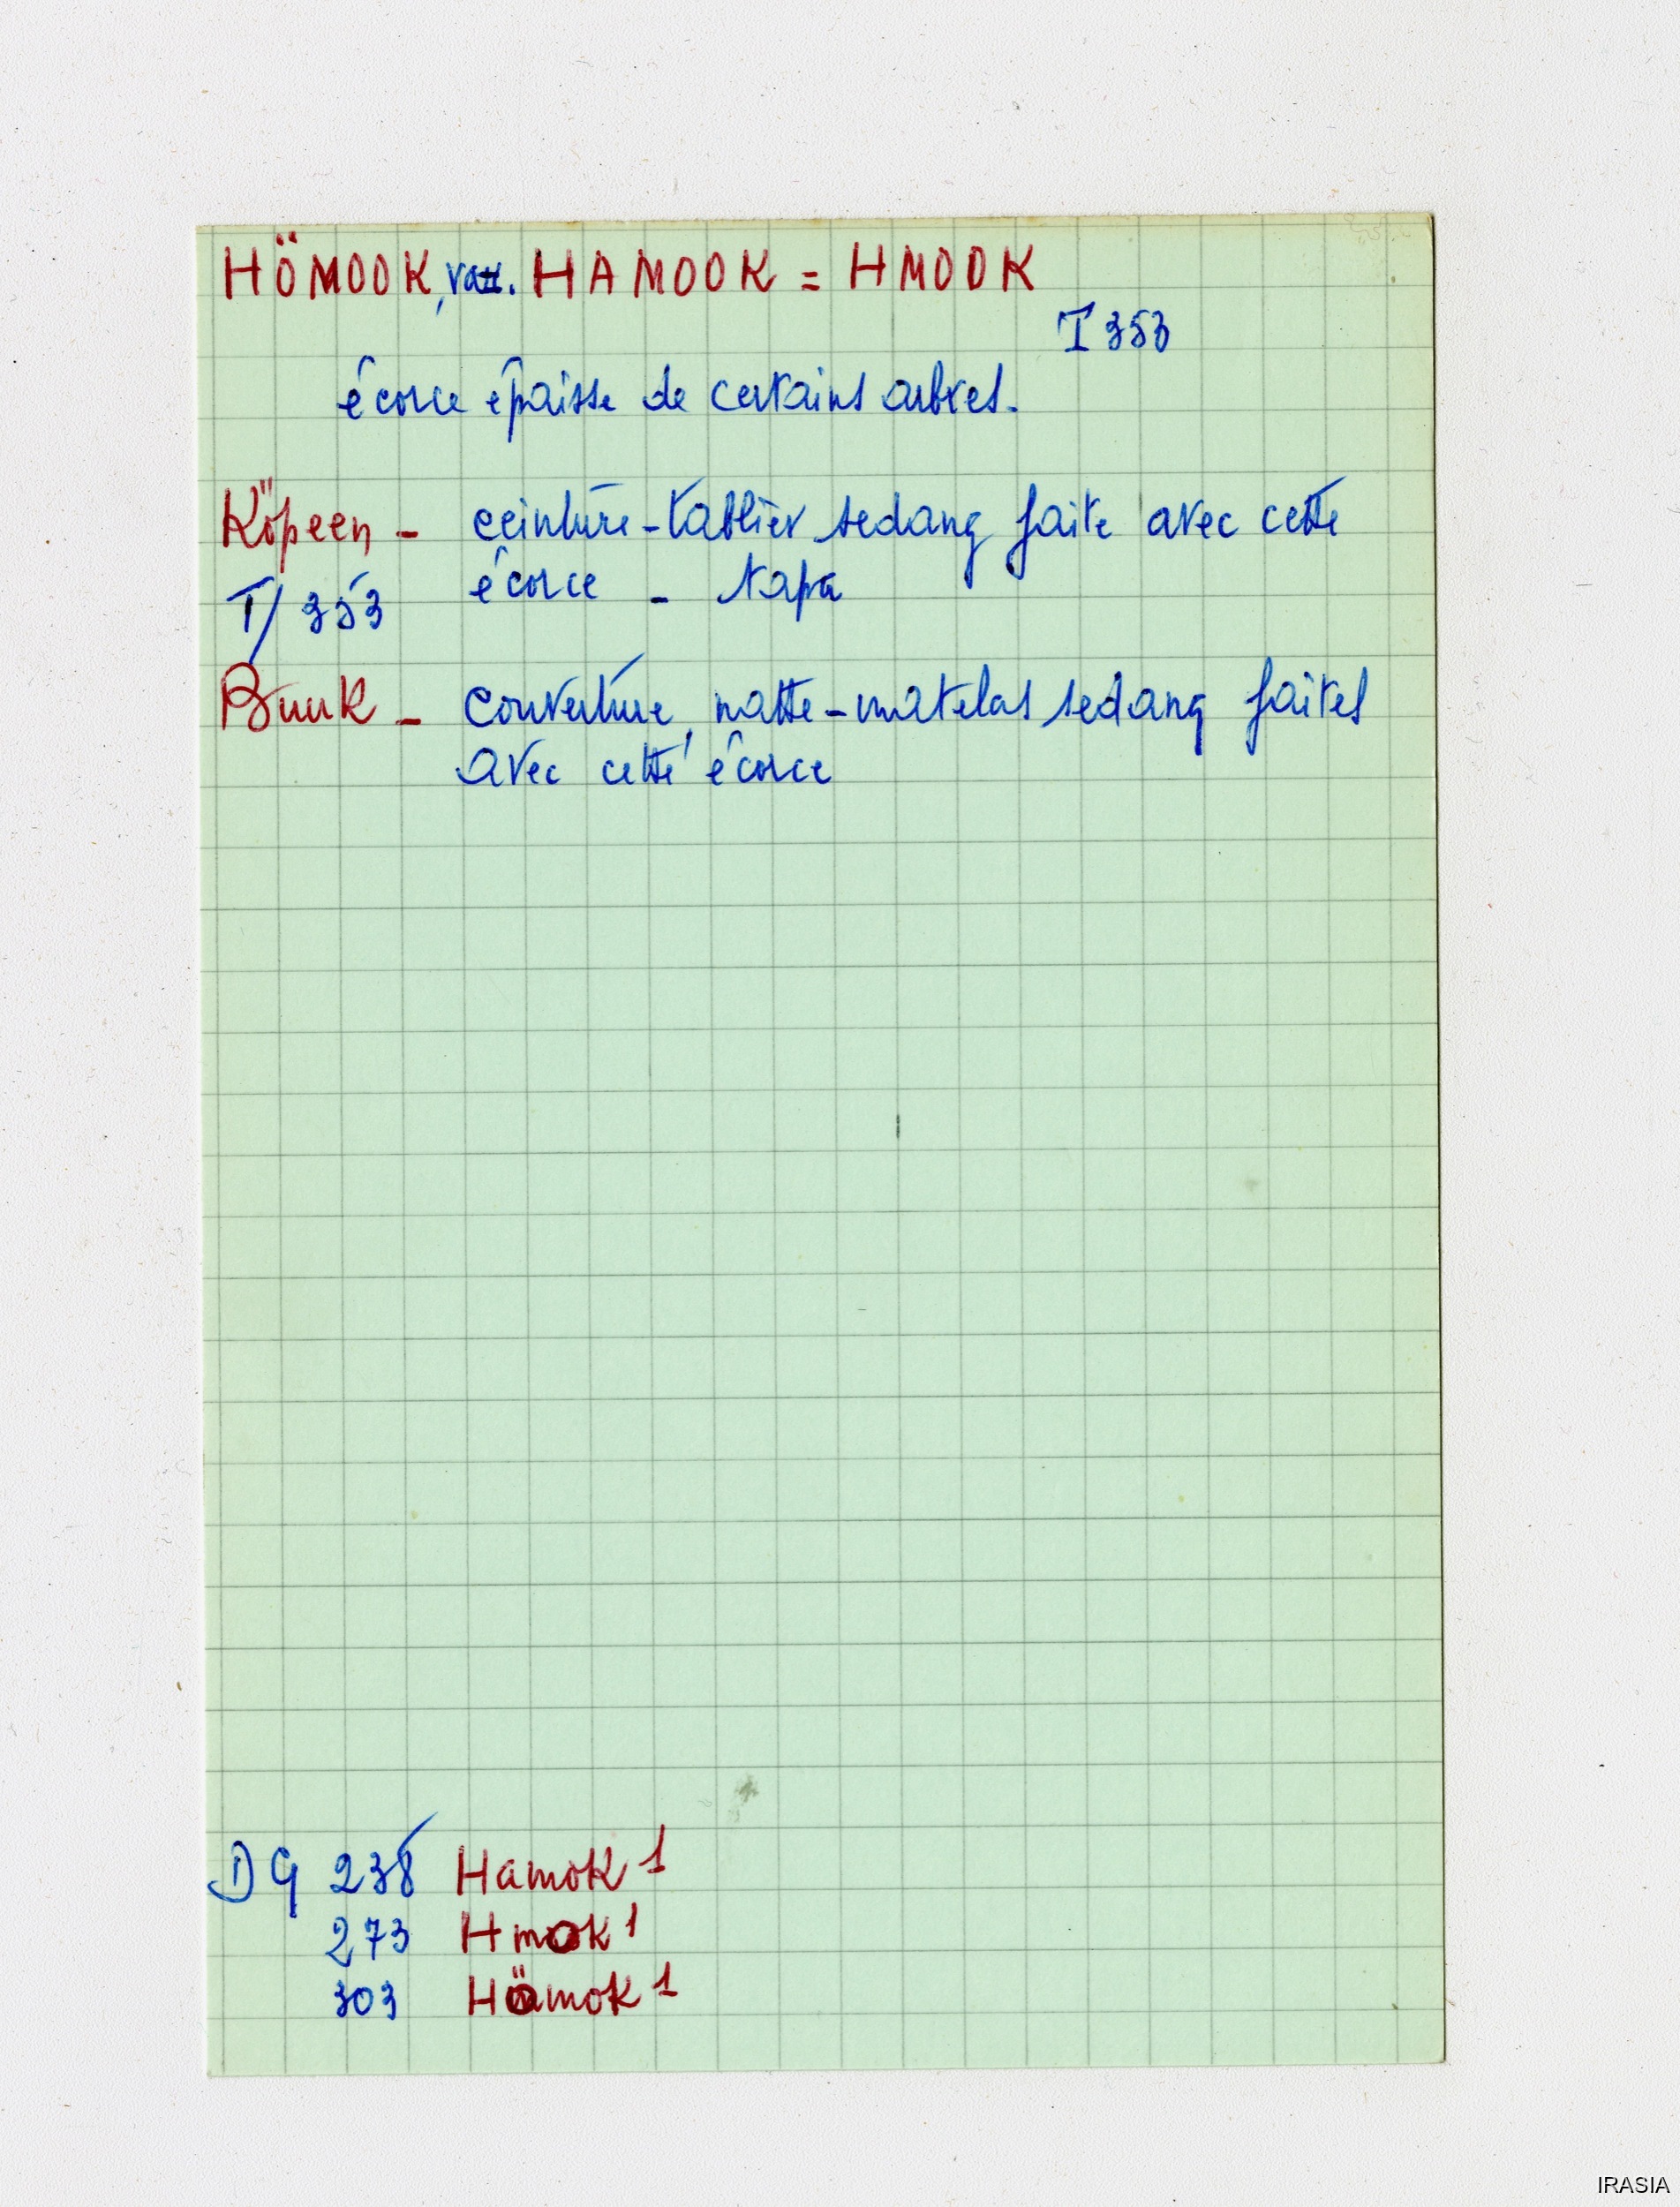 HÖMOOK, var. HAMOOK = HMOOK
T 353
écorce épaisse de certains arbres.
Köpeen - ceinture-tablier sedang faite avec cette
T/353 écorce - tapa
Buuk - couverture, natte-matelas sedang faites
avec cette écorce
DG 238 Hamok 1
273 Hmok 1
303 Hömok 1
IRASIA